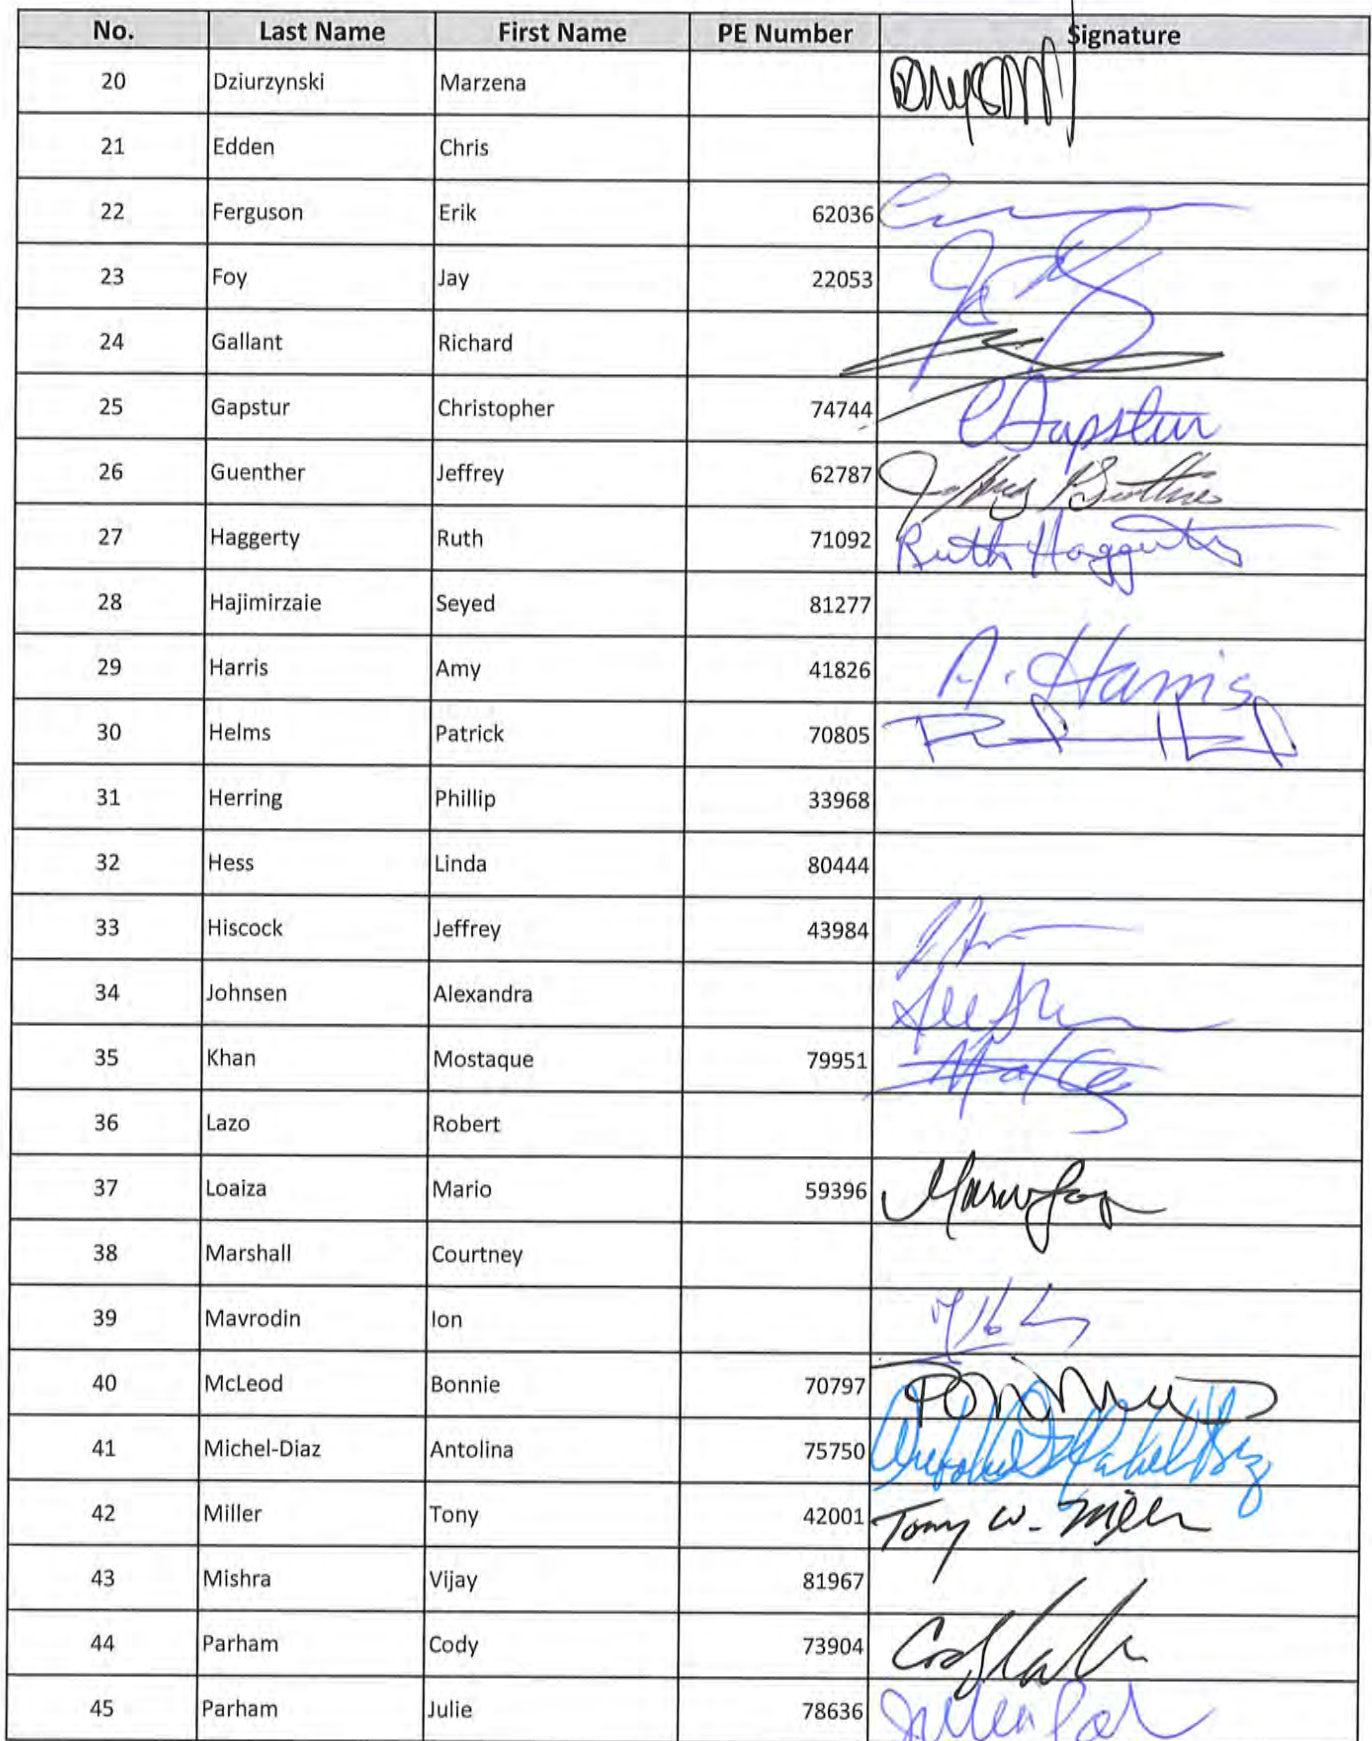 No. Last Name First Name PE Number Signature
20 Dziurzynski Marzena
21 Edden Chris
22 Ferguson Erik 62036
23 Foy Jay 22053
24 Gallant Richard
25 Gapstur Christopher 74744 C Gapstur
26 Guenther Jeffrey 62787 Jeffrey Guenther
27 Haggerty Ruth 71092 Ruth Haggerty
28 Hajimirzaie Seyed 81277
29 Harris Amy 41826 A. Harris
30 Helms Patrick 70805
31 Herring Phillip 33968
32 Hess Linda 80444
33 Hiscock Jeffrey 43984
34 Johnsen Alexandra
35 Khan Mostaque 79951
36 Lazo Robert
37 Loaiza Mario 59396
38 Marshall Courtney
39 Mavrodin Ion
40 McLeod Bonnie 70797
41 Michel-Diaz Antolina 75750
42 Miller Tony 42001 Tony W. Miller
43 Mishra Vijay 81967
44 Parham Cody 73904
45 Parham Julie 78636